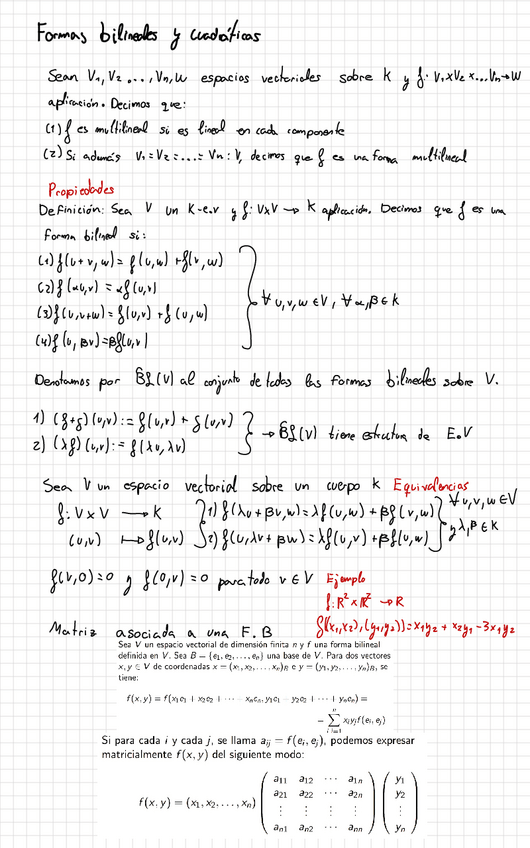 Formas bilineales y cuadráticas
Sean V₁, V₂ ..., Vn, W espacios vectoriales sobre K y f: V₁×V₂×...Vn→W
aplicación. Decimos que:
(1) f es multilineal si es lineal en cada componente
(2) Si además V₁=V₂=....=Vn: V, decimos que f es una forma multilineal
Propiedades
Definición: Sea V un K-e.v y f: V×V → K aplicación. Decimos que f es una
forma bilineal si:
(1) f(u+v, w) = f(u,w) + f(v,w)
(2) f(αu,v) = αf(u,v)
(3) f(u,v+w) = f(u,v) + f(u,w)
(4) f(u, βv) = βf(u,v)
∀ u,v,w ∈ V, ∀ α,β ∈ K
Denotamos por BL(V) al conjunto de todas las formas bilineales sobre V.
1) (f+g)(u,v) := f(u,v) + g(u,v)
2) (λf)(u,v) := f(λu, λv)
→ BL(V) tiene estructura de E.V
Sea V un espacio vectorial sobre un cuerpo K Equivalencias
f: V×V → K 1) f(λu+βv,w) = λf(u,w) + βf(v,w) ∀ u,v,w ∈ V
(u,v) ↦ f(u,v) 2) f(u,λv+βw) = λf(u,v) + βf(u,w) y λ,β ∈ K
f(v,0)=0 y f(0,v)=0 para todo v ∈ V Ejemplo
f: R² × R² → R
Matriz asociada a una F.B f((x₁,x₂),(y₁,y₂)) = x₁y₂ + x₂y₁ - 3x₁y₂
Sea V un espacio vectorial de dimensión finita n y f una forma bilineal
definida en V. Sea B = {e₁, e₂, ..., eₙ} una base de V. Para dos vectores
x, y ∈ V de coordenadas x = (x₁, x₂, ..., xₙ)B e y = (y₁, y₂, ..., yₙ)B, se
tiene:
f(x, y) = f(x₁e₁ + x₂e₂ + ··· + xₙeₙ, y₁e₁ + y₂e₂ + ··· + yₙeₙ) =
= ∑ xᵢyⱼf(eᵢ, eⱼ)
Si para cada i y cada j, se llama aᵢⱼ = f(eᵢ, eⱼ), podemos expresar
matricialmente f(x, y) del siguiente modo:
f(x, y) = (x₁, x₂, ..., xₙ)
a₁₁ a₁₂ ··· a₁ₙ y₁
a₂₁ a₂₂ ··· a₂ₙ y₂
⋮ ⋮ ⋮ ⋮ ⋮
aₙ₁ aₙ₂ ··· aₙₙ yₙ